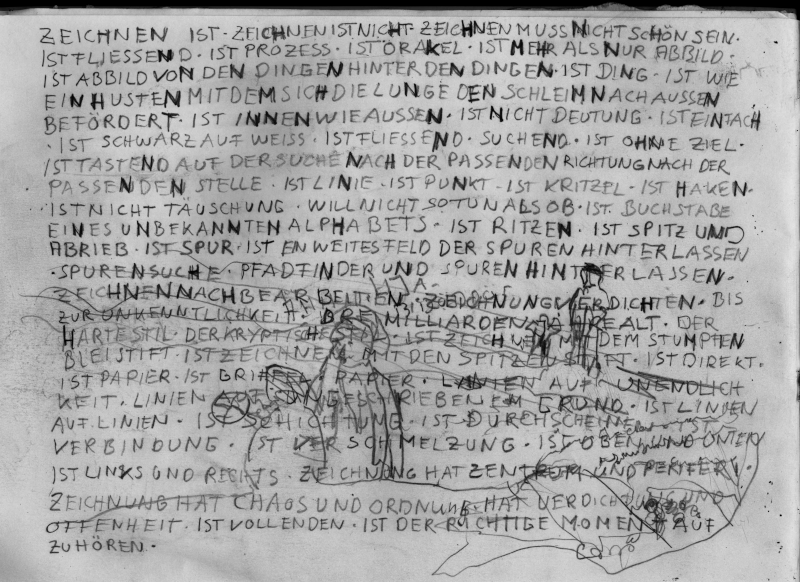 ZEICHNEN IST · ZEICHNEN IST NICHT · ZEICHNEN MUSS NICHT SCHÖN SEIN ·
IST FLIESSEND · IST PROZESS · IST ORAKEL · IST MEHR ALS NUR ABBILD ·
IST ABBILD VON DEN DINGEN HINTER DEN DINGEN · IST DING · IST WIE
EIN HUSTEN MIT DEM SICH DIE LUNGE DEN SCHLEIM NACH AUSSEN
BEFÖRDERT · IST INNEN WIE AUSSEN · IST NICHT DEUTUNG · IST EINFACH
· IST SCHWARZ AUF WEISS · IST FLIESSEND · SUCHEND · IST OHNE ZIEL ·
IST TASTEND AUF DER SUCHE NACH DER PASSENDEN RICHTUNG NACH DER
PASSENDEN STELLE · IST LINIE · IST PUNKT · IST KRITZEL · IST HAKEN ·
· IST NICHT TÄUSCHUNG · WILL NICHT SO TUN ALS OB · IST BUCHSTABE
EINES UNBEKANNTEN ALPHABETS · IST RITZEN · IST SPITZ UND
ABRIEB · IST SPUR · IST EN WEITES FELD DER SPUREN HINTERLASSEN
· SPURENSUCHE · PFADFINDER UND SPUREN HINTERLASSEN ·
ZEICHNEN NACHBEARBEITEN · ZEICHNUNG VERDICHTEN · BIS
ZUR UNKENNTLICHKEIT · DREI MILLIARDEN JAHRE ALT · DER
HARTE STIL · DER KRYPTISCHE · IST ZEICHNEN MIT DEM STUMPFEN
BLEISTIFT · IST ZEICHNEN MIT DEN SPITZEN STIFT · IST DIREKT ·
IST PAPIER · IST PAPIER · LINIEN AUF UNENDLICH
KEIT · LINIEN AUF GRUND · IST LINIEN
AUF LINIEN · IST SCHICHTUNG · IST DURCHSCHEINEN · IST
VERBINDUNG · IST VERSCHMELZUNG · IST OBEN UND UNTEN
IST LINKS UND RECHTS · ZEICHNUNG HAT ZENTRUM UND PERIFERI ·
ZEICHNUNG HAT CHAOS UND ORDNUNG · HAT VERDICHTUNG UND
OFFENHEIT · IST VOLLENDEN · IST DER RICHTIGE MOMENT AUF
ZU HÖREN ·